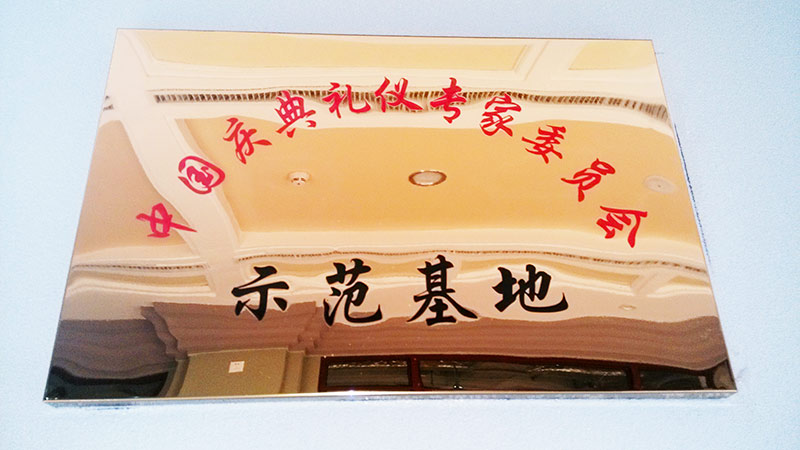 中国庆典礼仪专家委员会
示范基地